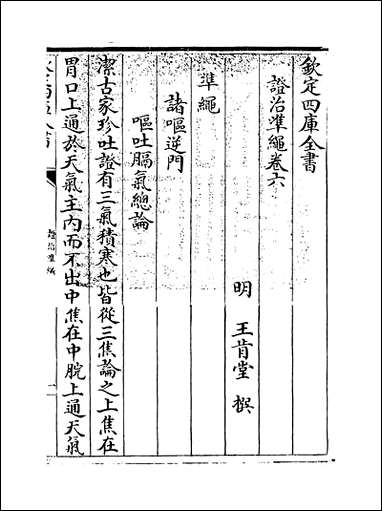 欽定四庫全書
證治凖繩卷六
明 王肯堂 撰
凖繩
諸嘔逆門
嘔吐膈氣總論
潔古家珍吐證有三氣積寒也皆從三焦論之上焦在
胃口上通於天氣主内而不出中焦在中脘上通天氣